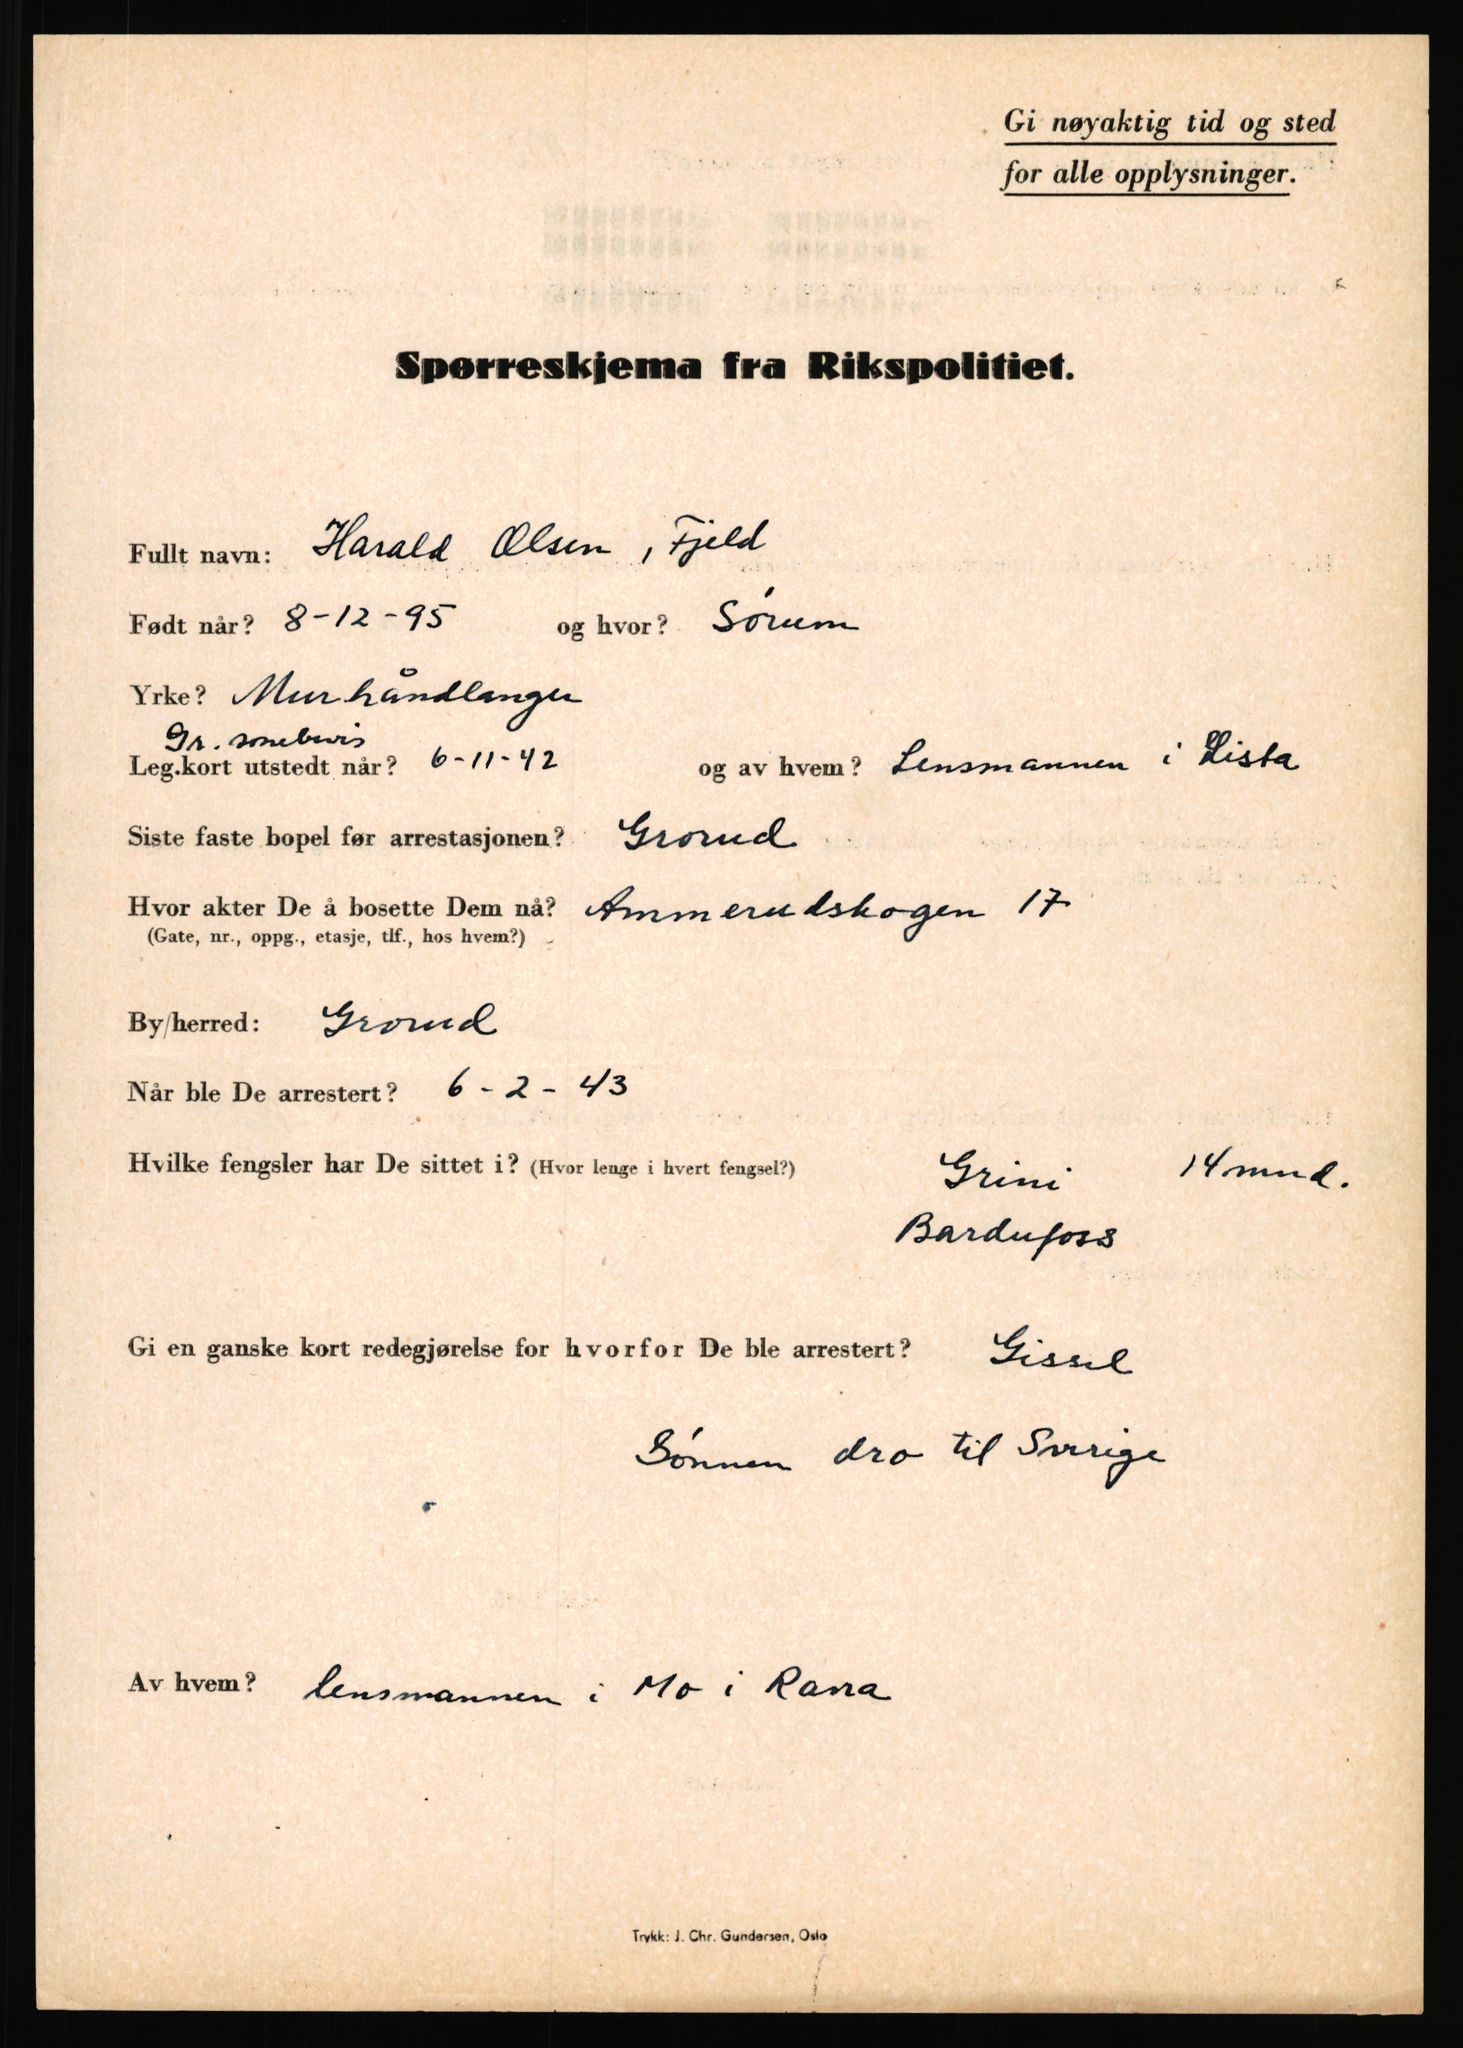 Gi nøyaktig tid og sted
for alle opplysninger.
Spørreskjema fra Rikspolitiet.
Fullt navn: Harald Olsen, Fjeld
Født når? 8-12-95 og hvor? Sørum
Yrke? Murhåndlanger
Gr. sonebevis
Leg.kort utstedt når? 6-11-42 og av hvem? Lensmannen i Lista
Siste faste bopel før arrestasjonen? Grorud
Hvor akter De å bosette Dem nå? Ammerudskogen 17
(Gate, nr., oppg., etasje, tlf., hos hvem?)
By/herred: Grorud
Når ble De arrestert? 6-2-43
Hvilke fengsler har De sittet i? (Hvor lenge i hvert fengsel?) Grini 14 mnd.
Bardufoss
Gi en ganske kort redegjørelse for hvorfor De ble arrestert? Gissel
Sønnen dro til Sverige
Av hvem? lensmannen i Mo i Rana
Trykk: J. Chr. Gundersen, Oslo